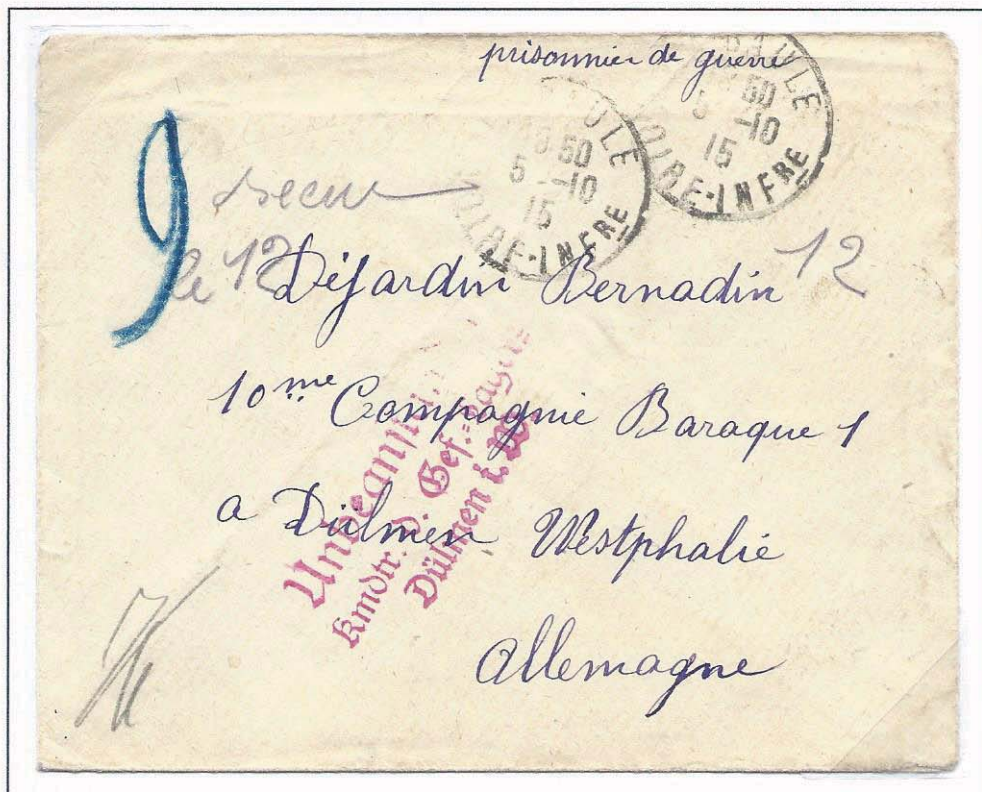 prisonnier de guerre
BAULE
50
5 -10
15
LOIRE-INFRE
AULE
50
5 -10
15
LOIRE-INFRE
9
le 12
12
Déjardin Bernadin
10me Compagnie Baraque 1
a Dülmen Westphalie
Allemagne
Kmdtr. d. Gef.=Lagers
Dülmen i. W.